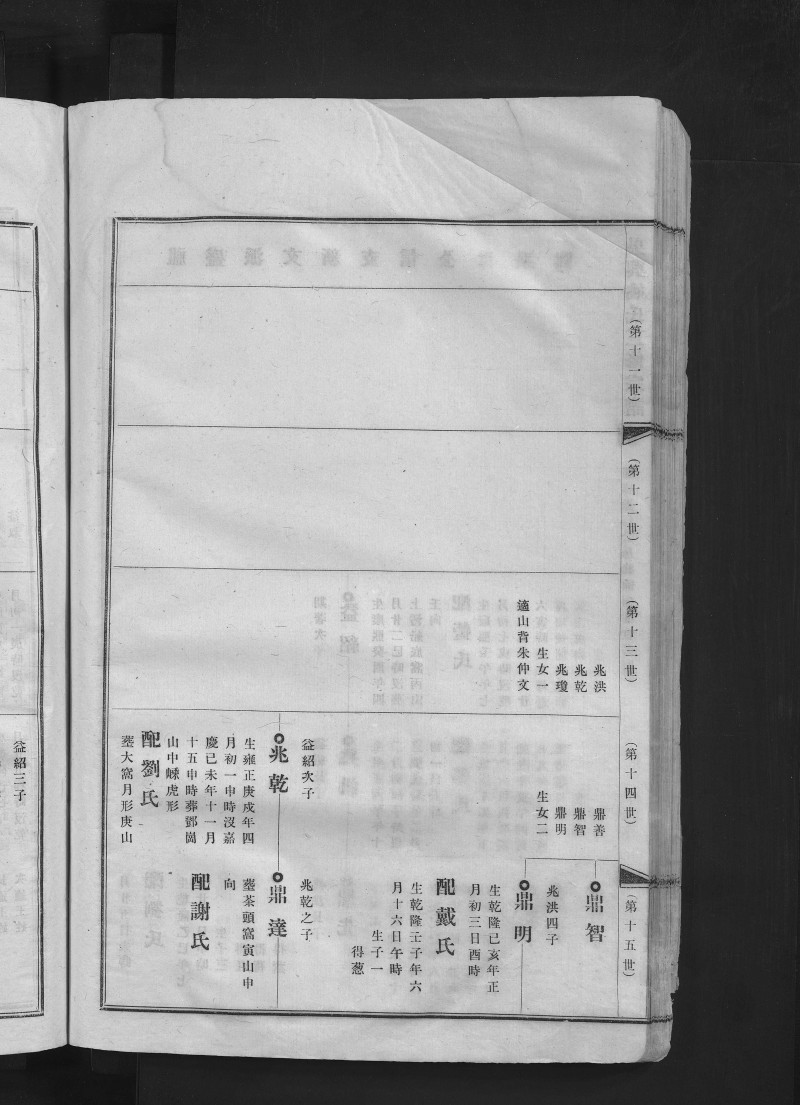 (第十一世)
(第十二世)
(第十三世)
兆洪
兆乾
兆瓊
生女一
山背朱仲文
(第十四世)
鼎善
鼎智
鼎明
生女二
益紹次子
兆乾
生雍正庚戌年四
月初一申時沒嘉
慶己未年十一月
十五申時葬鄧崗
山中嵊虎形
配劉氏
塟大窩月形庚山
(第十五世)
鼎智
兆洪四子
鼎明
生乾隆己亥年正
月初三日酉時
配戴氏
生乾隆壬子年六
月十六日午時
生子一
得葱
兆乾之子
鼎達
塟茶頭窩寅山申
向
配謝氏
益紹三子